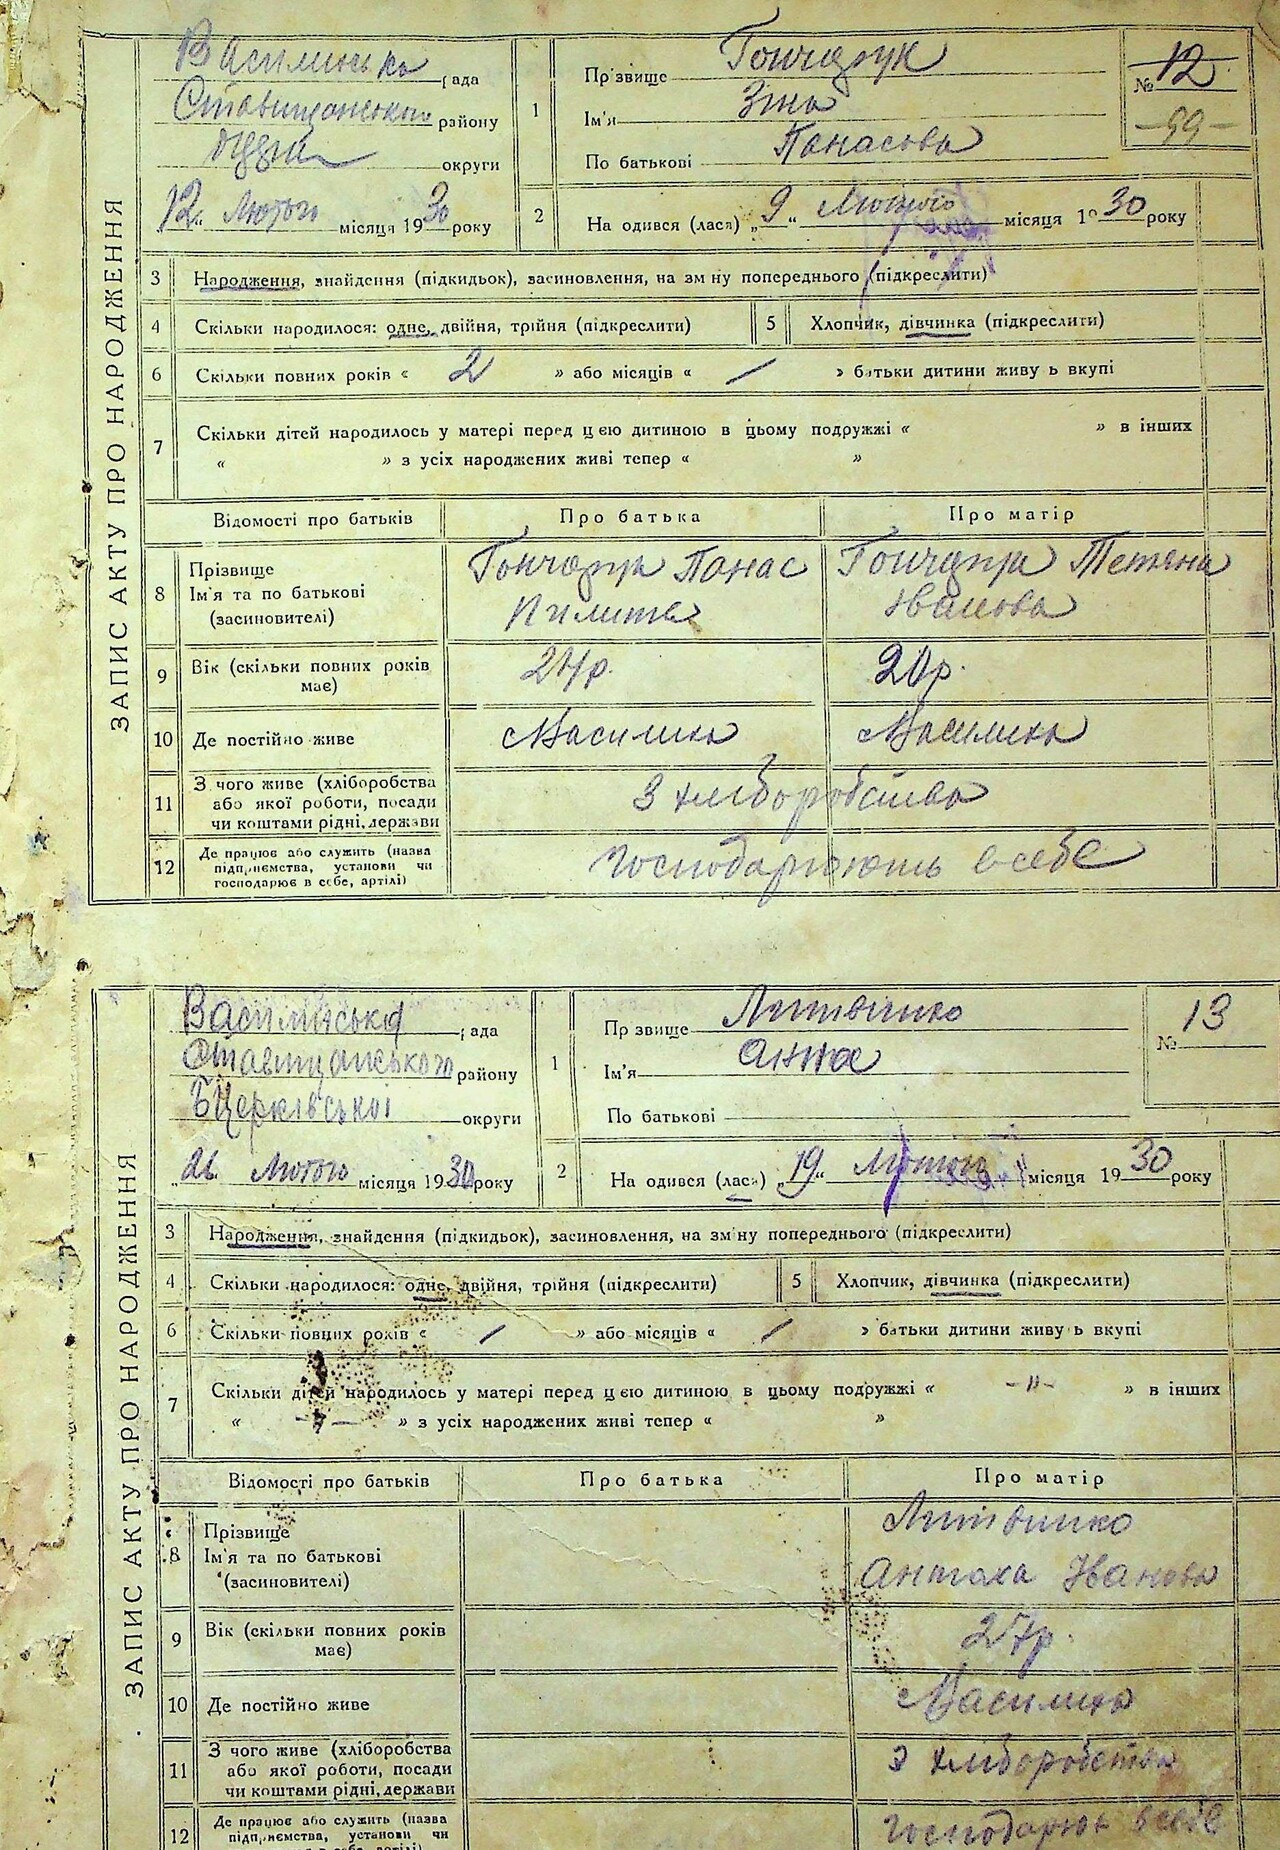 ЗАПИС АКТУ ПРО НАРОДЖЕННЯ
Василиська рада
Ставищанського району
округи
"12" Лютого місяця 1930 року
1 Прізвище Гончарук
Ім'я Зіна
По батькові Панасова
№ 12
-99-
2 На одився (лася) "9" Лютого місяця 1930 року
3 Народження, знайдення (підкидьок), засиновлення, на зміну попереднього (підкреслити)
4 Скільки народилося: одне, двійня, трійня (підкреслити) 5 Хлопчик, дівчинка (підкреслити)
6 Скільки повних років « 2 » або місяців « / » батьки дитини живу ь вкупі
7 Скільки дітей народилось у матері перед цією дитиною в цьому подружжі « » в інших
« » з усіх народжених живі тепер « »
Відомості про батьків Про батька Про матір
8 Прізвище Ім'я та по батькові (засиновителі)
Гончарук Панас
Гончарук Тетяна Іванова
9 Вік (скільки повних років має) 24р. 20р.
10 Де постійно живе Василиха Василиха
11 З чого живе (хліборобства або якої роботи, посади чи коштами рідні, держави З хліборобства
12 Де працює або служить (назва підприємства, установи чи господарює в себе, артілі) Господарюють в себе
ЗАПИС АКТУ ПРО НАРОДЖЕННЯ
Василиської рада
Ставищанського району
БЦерківської округи
"26" Лютого місяця 1930 року
1 Прізвище Литвінко
Ім'я Анна
По батькові
№ 13
2 На одився (лася) "19" Лютого місяця 1930 року
3 Народження, знайдення (підкидьок), засиновлення, на зміну попереднього (підкреслити)
4 Скільки народилося: одне, двійня, трійня (підкреслити) 5 Хлопчик, дівчинка (підкреслити)
6 Скільки повних років « / » або місяців « / » батьки дитини живу ь вкупі
7 Скільки дітей народилось у матері перед цією дитиною в цьому подружжі « -"- » в інших
« -"- » з усіх народжених живі тепер « »
Відомості про батьків Про батька Про матір
8 Прізвище Ім'я та по батькові (засиновителі)
Литвинко
Іванова
9 Вік (скільки повних років має) 27р.
10 Де постійно живе Василиха
11 З чого живе (хліборобства або якої роботи, посади чи коштами рідні, держави З хліборобства
12 Де працює або служить (назва підприємства, установи чи в себе, артілі) Господарює в себе